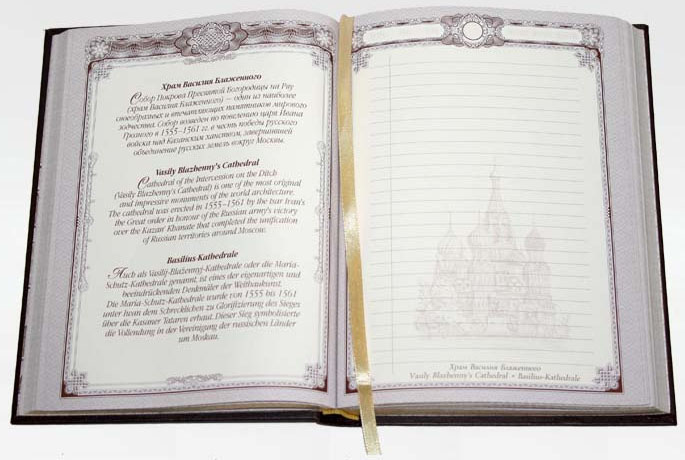 Храм Василия Блаженного
Собор Покрова Пресвятой Богородицы на Рву
(храм Василия Блаженного) — один из наиболее
своеобразных и впечатляющих памятников мирового
зодчества. Собор возведен по повелению царя Ивана
Грозного в 1555–1561 гг. в честь победы русского
войска над Казанским ханством, завершившей
объединение русских земель вокруг Москвы.
Vasily Blazhenny's Cathedral
Cathedral of the Intervession on the Ditch
(Vasily Blazhenny's Cathedral) is one of the most original
and impressive monuments of the world architecture.
The cathedral was erected in 1555–1561 by the tsar Ivan's
the Great order in honour of the Russian army's victory
over the Kazan' Khanate that completed the unification
of Russian territories around Moscow.
Basilius-Kathedrale
Auch als Vasilij-Blažennyj-Kathedrale oder die Maria-
Schutz-Kathedrale genannt, ist eines der eigenartigen und
beeindruckenden Denkmäler der Weltbaukunst.
Die Maria-Schutz-Kathedrale wurde von 1555 bis 1561
unter Iwan dem Schrecklichen zu Glorifizierung des Sieges
über die Kasaner Tataren erbaut. Dieser Sieg symbolisierte
die Vollendung in der Vereinigung der russischen Länder
um Moskau.
Храм Василия Блаженного
Vasily Blazhenny's Cathedral • Basilius-Kathedrale